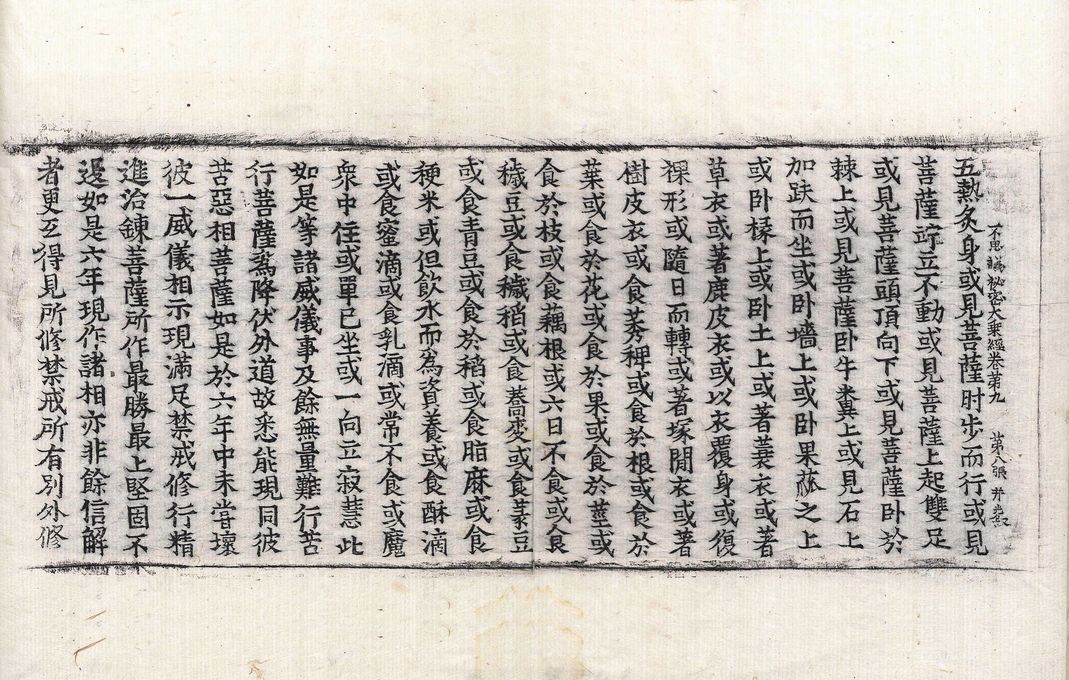 不思議祕密大乘經卷第九 第八張 井
五熱炙身或見菩薩肘步而行或見
菩薩竚立不動或見菩薩上起雙足
或見菩薩頭頂向下或見菩薩卧於
棘上或見菩薩卧牛糞上或見石上
加趺而坐或卧墻上或卧果蓏之上
或卧椽上或卧土上或著蓑衣或著
草衣或著鹿皮衣或以衣覆身或復
裸形或隨日而轉或著塚閒衣或著
樹皮衣或食莠稗或食於根或食於
葉或食於花或食於果或食於莖或
食於枝或食藕根或六日不食或食
穢豆或食穢稻或食蕎麥或食菉豆
或食青豆或食於稻或食脂麻或食
粳米或但飲水而爲資養或食酥滴
或食蜜滴或食乳滴或常不食或魔
衆中住或單已坐或一向立寂慧此
如是等諸威儀事及餘無量難行苦
行菩薩爲降伏外道故悉能現同彼
苦惡相菩薩如是於六年中未嘗壞
彼一威儀相示現滿足禁戒修行精
進治鍊菩薩所作最勝最上堅固不
退如是六年現作諸相亦非餘信解
者更互得見所修禁戒所有別外修